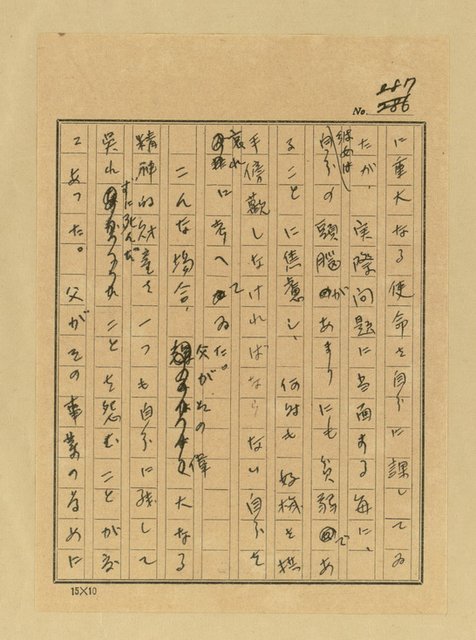 287
286
No.
に重大なる使命を自分に課してゐ
たが、実際問題に当面する毎に、
彼女は自分の頭脳があまりにも貧弱であ
ることに焦慮し、何時も好機を拱
手傍観しなければならない自分を
哀れに考へてゐた。
こんな場合、父がその偉大なる
精神的財産を一つも自分に残して
呉れずに死んだことを怨むことが
あった。父がその事業のために
15×10